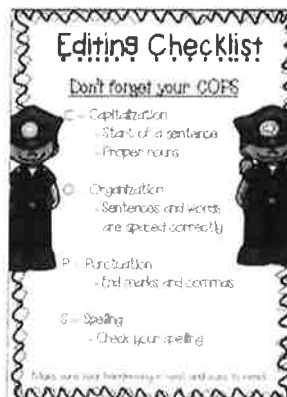 Editing Checklist
Don't forget your COPS
C - Capitalization
- Start of a sentence
- Proper nouns
O - Organization
- Sentences and words
are spaced correctly
P - Punctuation
- End marks and commas
S - Spelling
- Check your spelling
Make sure your handwriting is neat and easy to read!